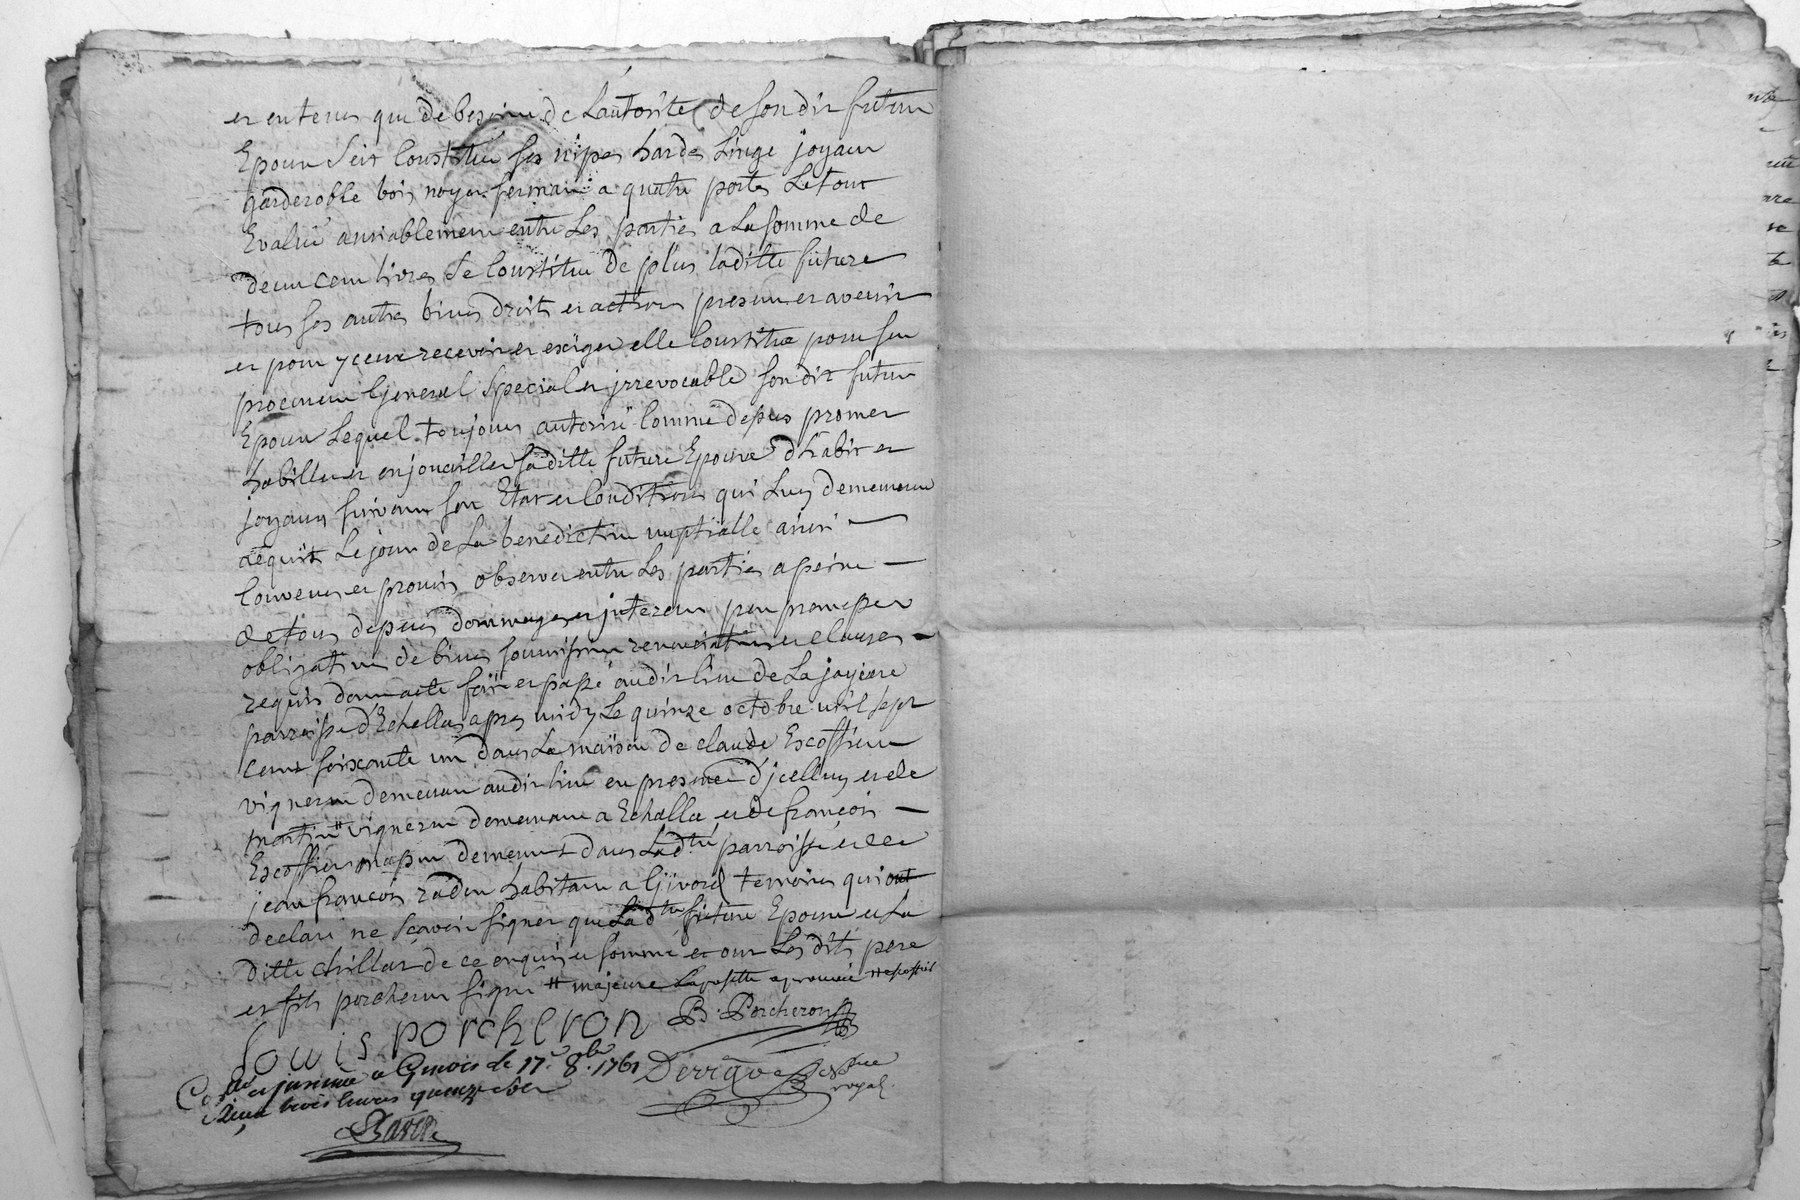 et en tems que de besoin de L'autorite de son dit futur
Epoux s'est Constitué ses nipes harde Linge joyaux
garderobbe bois noyer fermant a quatre portes Le tout
Evalué amiablement entre Les parties a La somme de
deux cent livres se Constitue de plus laditte future
tous ses autres biens droits et actions present et avenir
et pour yceux recevoir et exiger elle Constitue pour son
procureur General special et jrrevocable son dit futur
Epoux Lequel toujours autorisé Comme depus promet
habiller et enjouailler saditte future Epouse d'habit et
joyaux suivant son Etat et Condition qui Luy demeureront
acquis Le jour de La benediction nuptialle ainsi
Convenu et promis observer entre Les parties a peine
de tous depens dommages et jnterets par
obligation de biens soumissions renonciations et clauses
requis dont acte fait et passé audit lieu de La jayere
parroisse d'Echallas apres midy Le quinze octobre mil sept
cent soixante un dans La maison de claude Escoffier
vigneron demeurant audit lieu en presence d'jcelluy et de
martin vigneron demeurant a Echallas et de françois
Escoffier demeurant dans Ladte parroisse et de
jean françois habitant a Givord temoins qui ont
declaré ne sçavoir signer que Ladte future Epouse et La
ditte chillat de ce enquis et sommé et ont Les dits pere
et fils porcheron signé # majeure La postille aprouvée
Louis porcheron B. Porcheron
a Givors le 17e 8bre 1761
trois livres quinze
royal